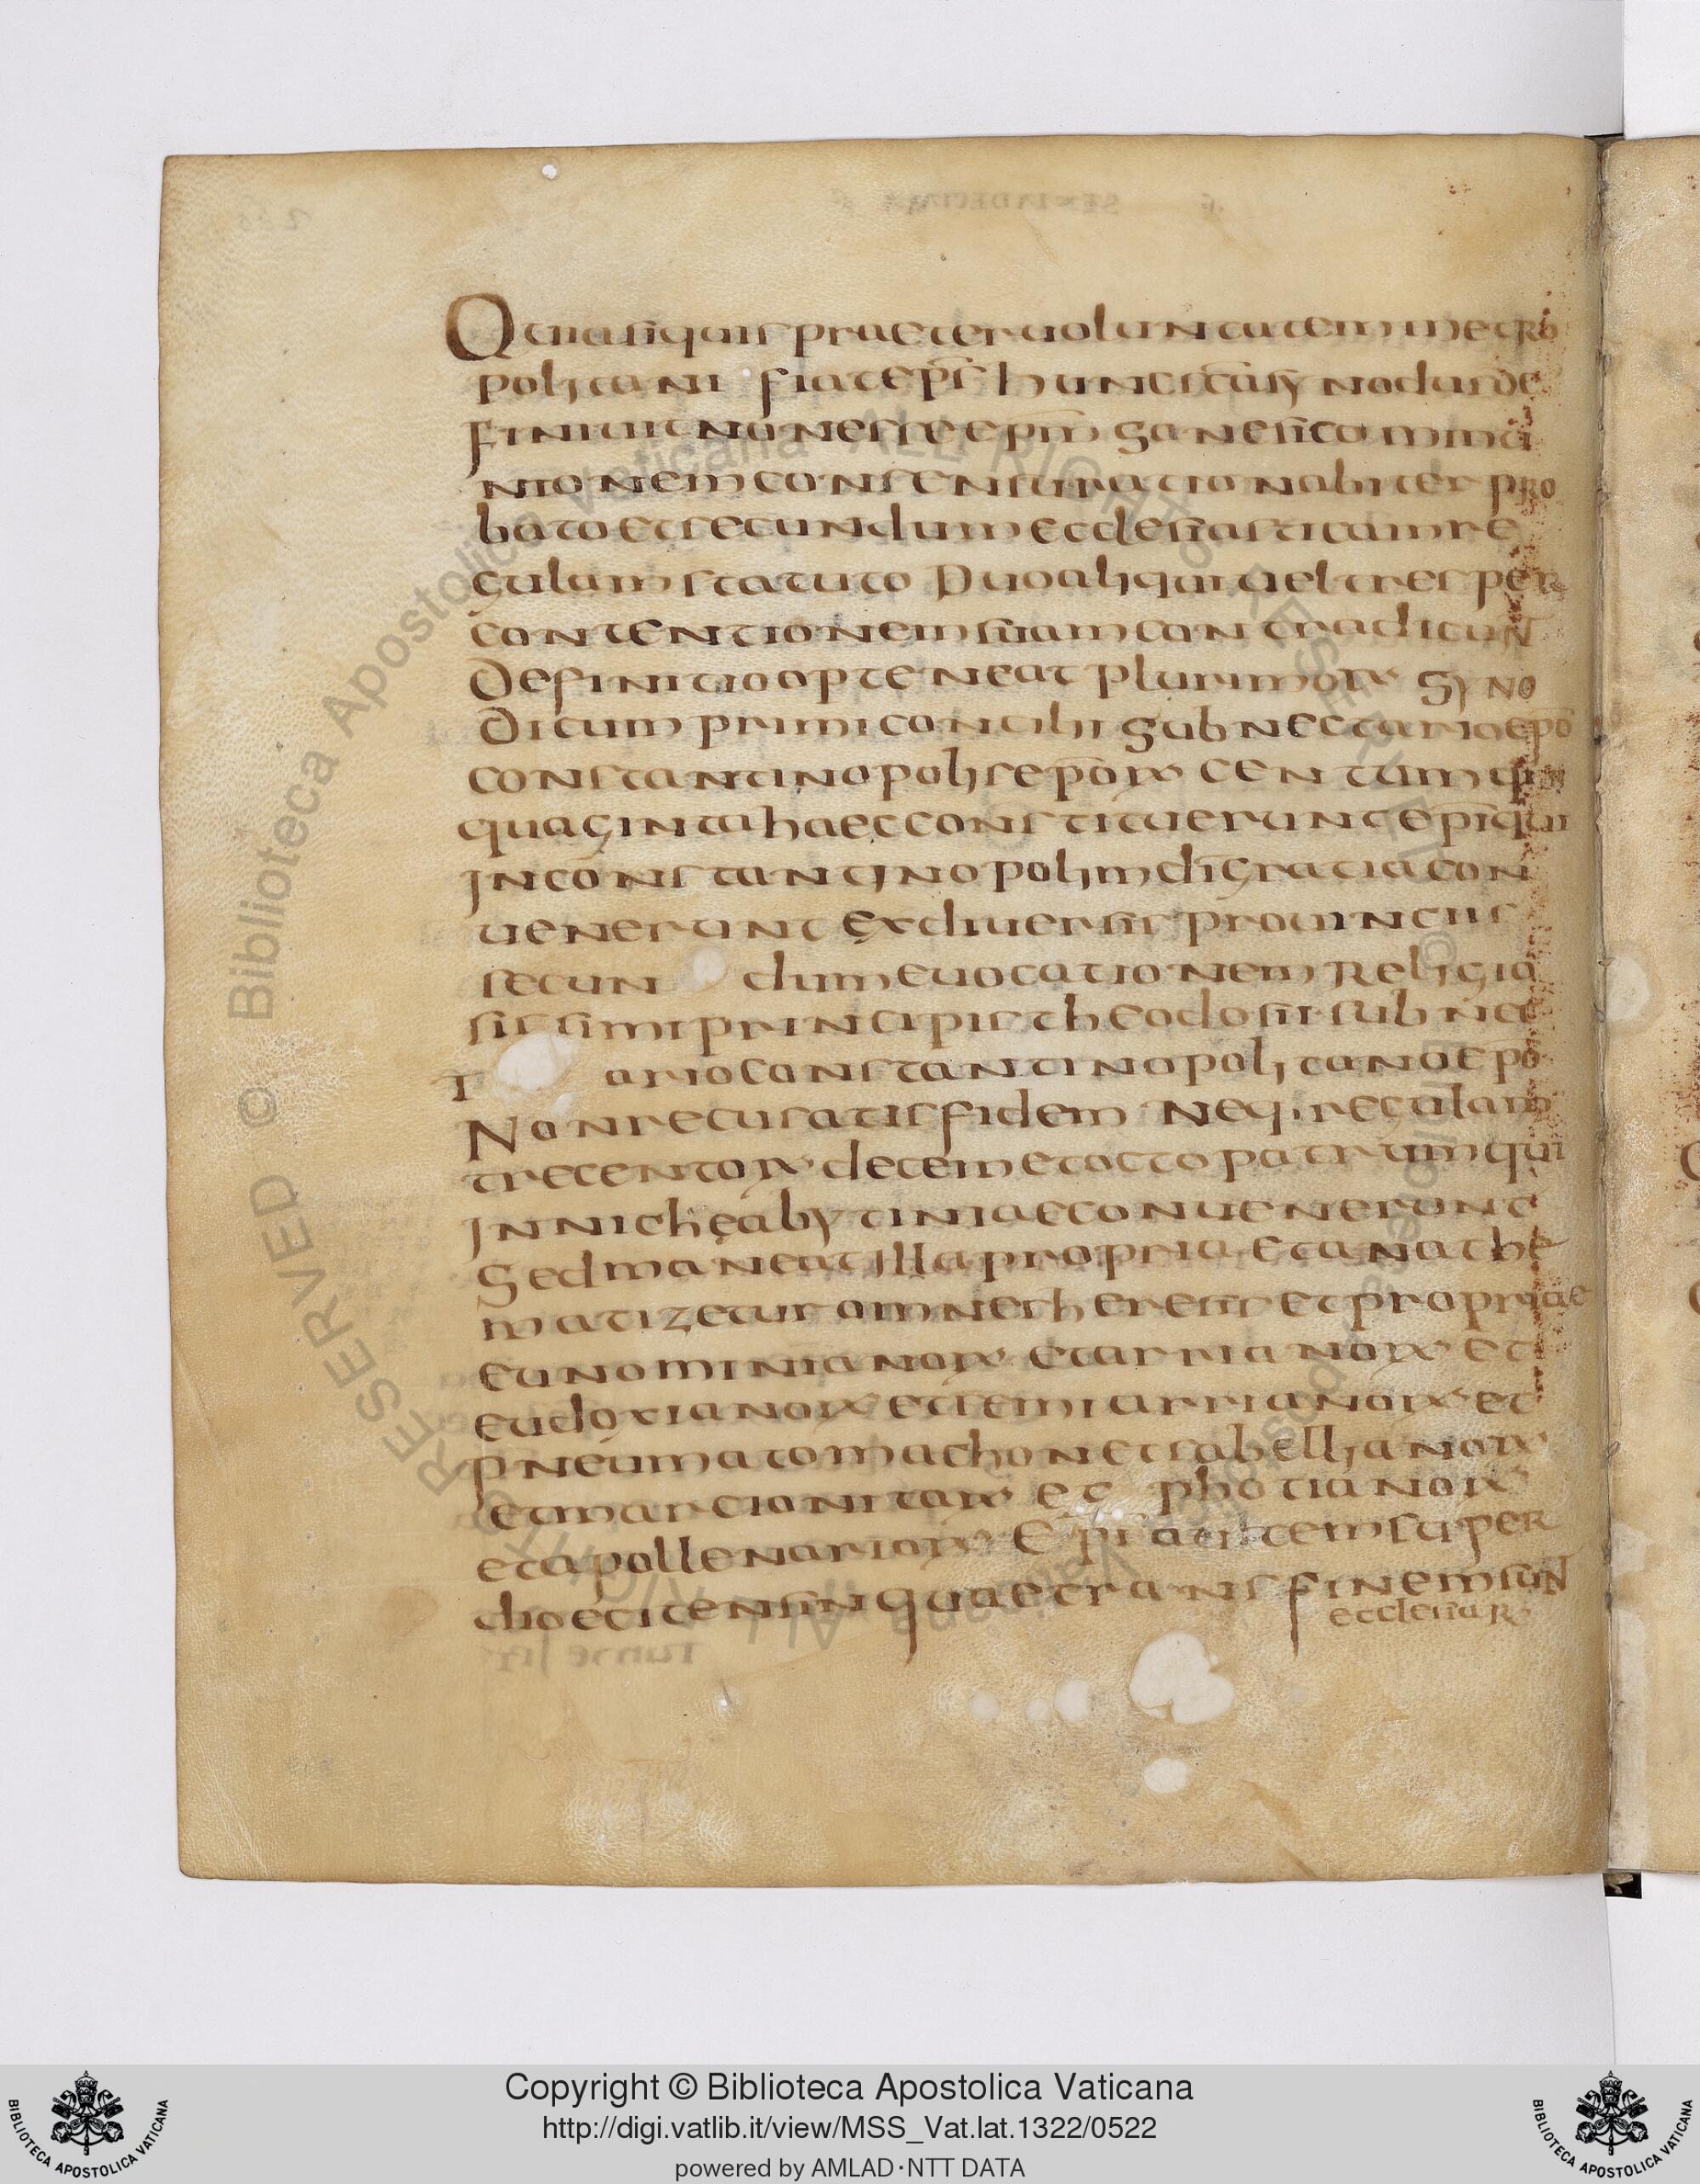 Quia si quis praeter uoluntatem metro
politani fiat eps hunc scam synodus de
finiuit non esse epm Sane si commu
nionem consensu rationabiliter pro
bato et secundum ecclesiasticam re
gulam statuto Duo aliqui uel tres per
contentionem suam contradicun
Definitio opteneat plurimorum Syno
dicum primi concilii Sub nectario epo
constantinopolis eporum Centum quin
quaginta haec constituerunt epi qui
In constantinopolim di gratia con
uenerunt ex diuersis prouinciis
secun dum euocationem Religio
sissimi principis theodosii sub nec
T ario constantinopolitano epo
Non recusatis fidem Neq. regulam
trecentorum decem et octo patrum qui
In nichea bytiniae conuenerunt
Sed maneat illa propria et anathe
matizetur omnes heresis et propriae
eunominianorum et arrianorum et
eudoxianorum et semiarrianorum et
pneumatomachon et sabellianorum
et marcionitarum et photianorum
et apollenariorum Epi autem super
dioecitensin quae trans finem sun
ecclesiar
Copyright © Biblioteca Apostolica Vaticana
http://digi.vatlib.it/view/MSS_Vat.lat.1322/0522
powered by AMLAD·NTT DATA